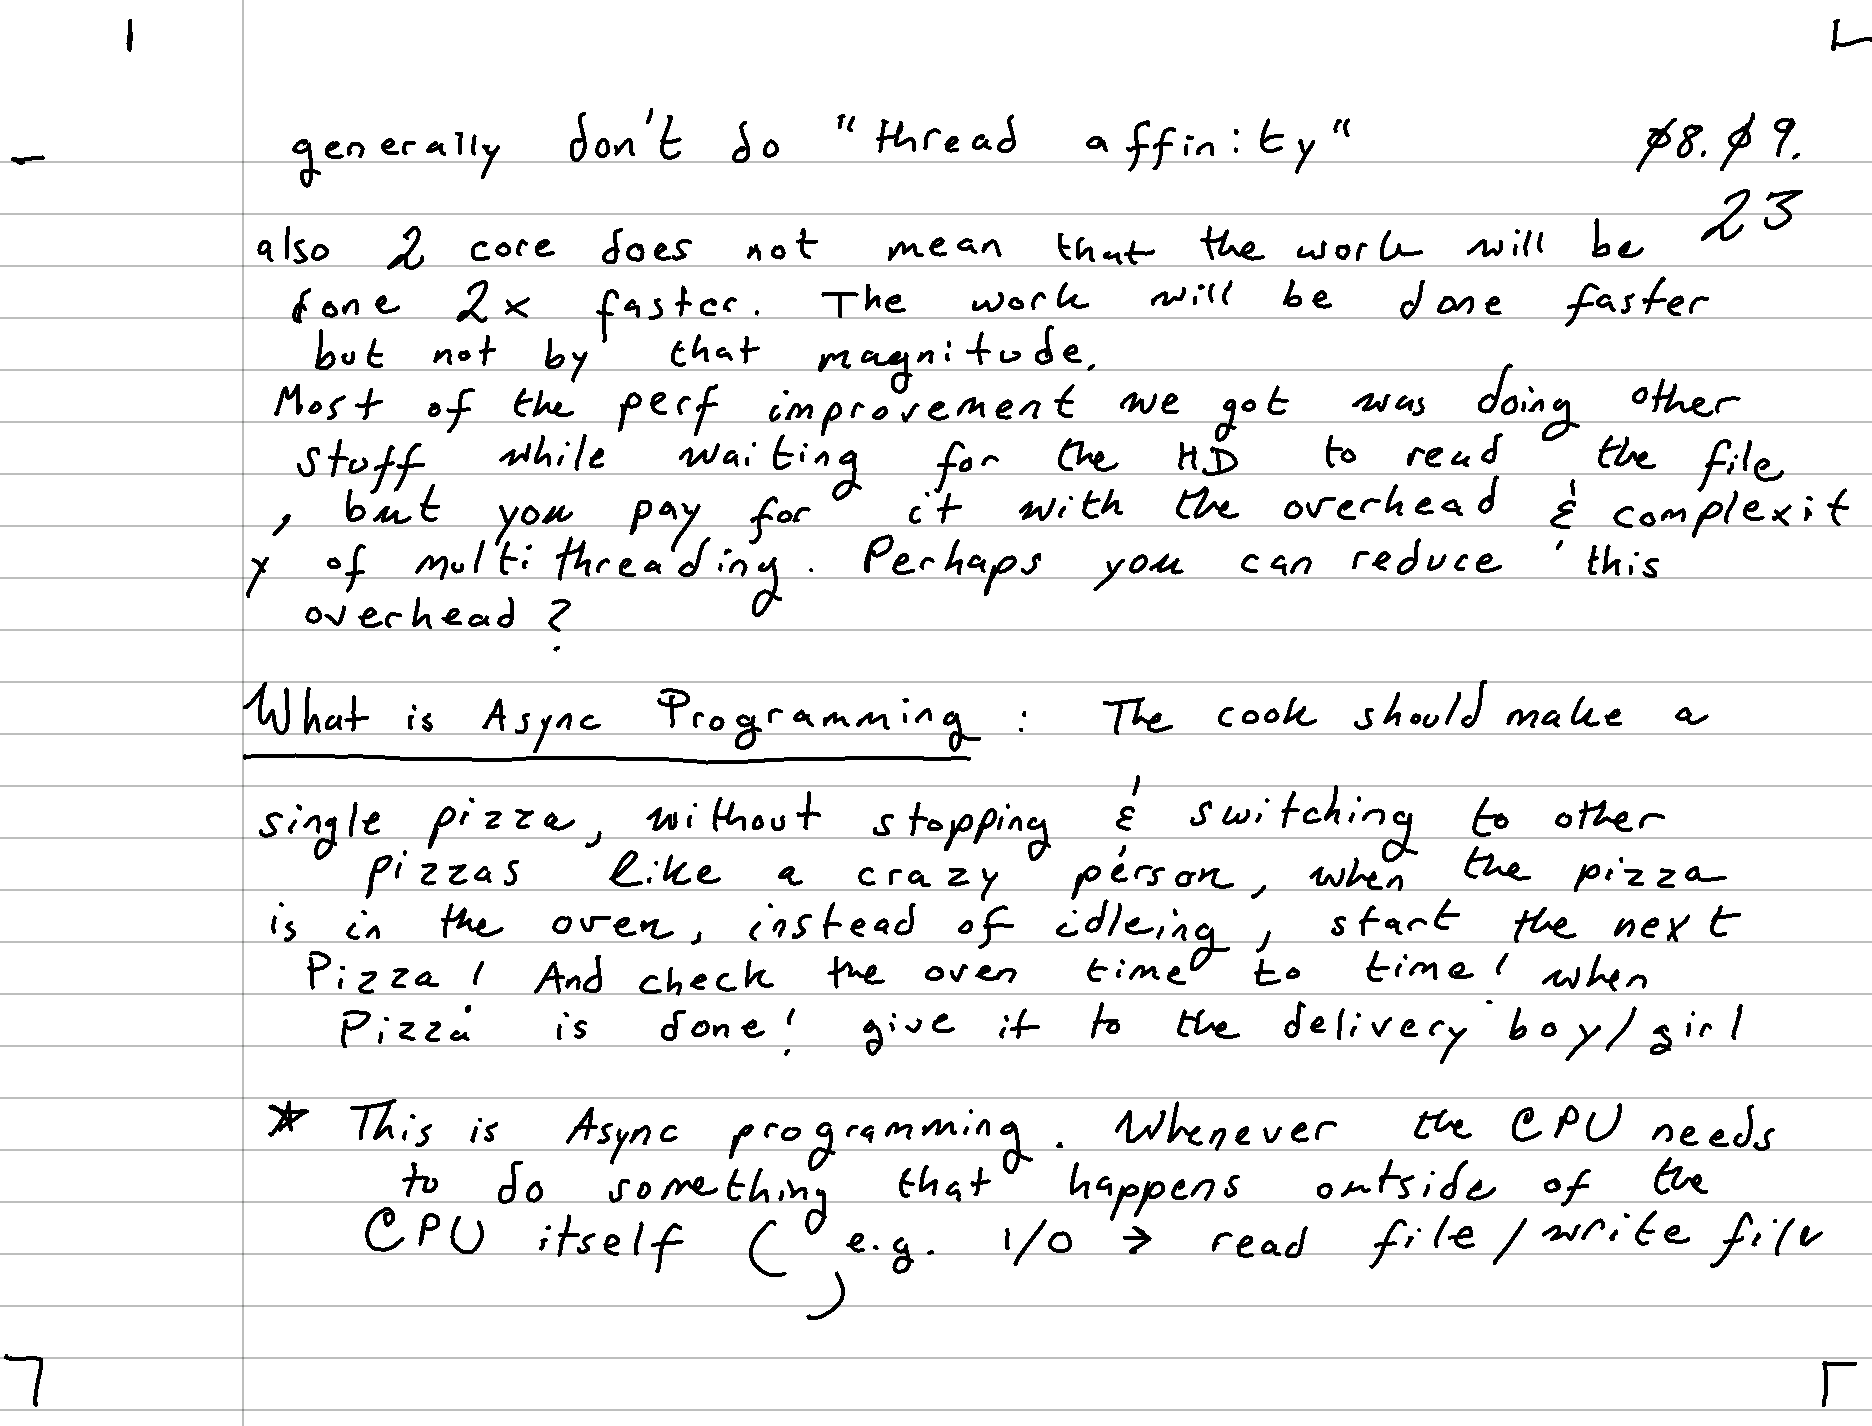 generally don't do "thread affinity" 08.09.
23
also 2 core does not mean that the work will be
done 2x faster. The work will be done faster
but not by that magnitude.
Most of the perf improvement we got was doing other
stuff while waiting for the HD to read the file
, but you pay for it with the overhead & complexit
y of multithreading. Perhaps you can reduce this
overhead?
What is Async Programming : The cook should make a
single pizza, without stopping & switching to other
pizzas like a crazy person, when the pizza
is in the oven, instead of idleing, start the next
Pizza! And check the oven time to time! when
Pizza is done! give it to the delivery boy/girl
* This is Async programming. Whenever the CPU needs
to do something that happens outside of the
CPU itself ( e.g. I/O → read file/write file
)